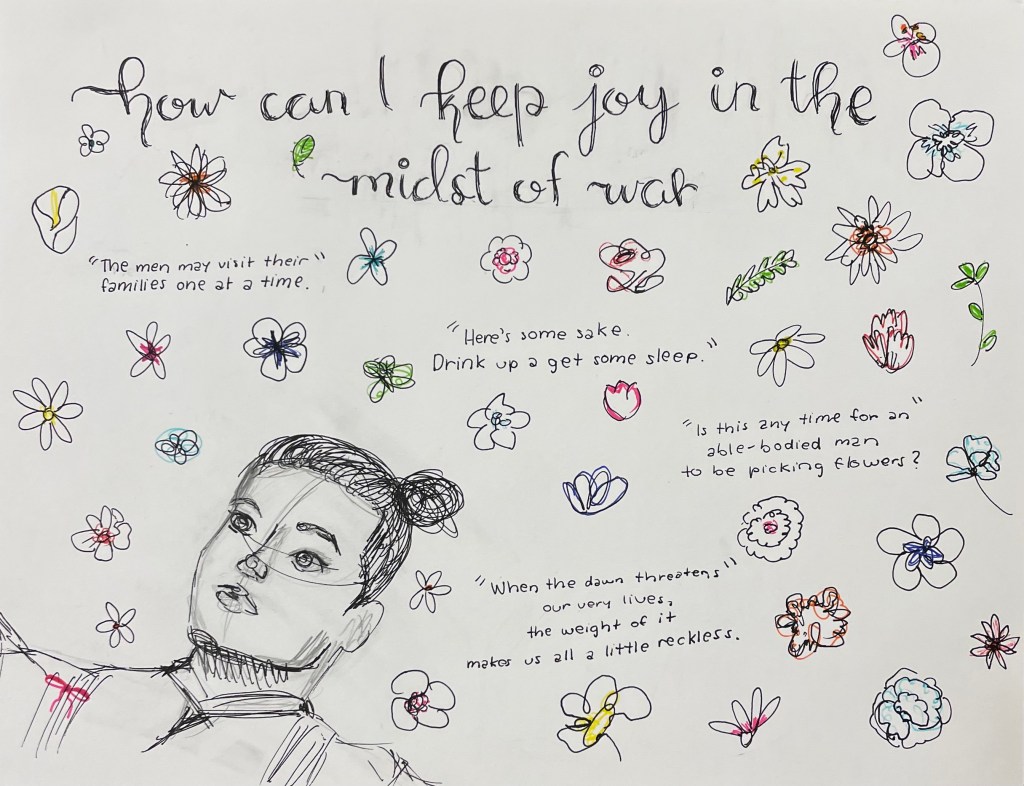 how can I keep joy in the
midst of war
"The men may visit their"
families one at a time.
"Here's some sake.
Drink up a get some sleep."
"Is this any time for an"
able-bodied man
to be picking flowers?
"When the dawn threatens"
our very lives,
the weight of it
makes us all a little reckless.